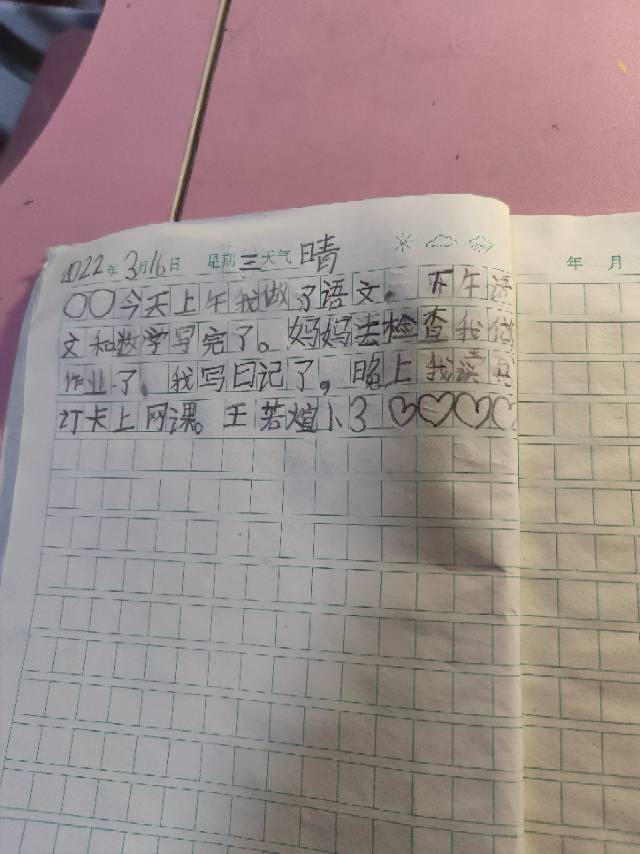 2022年3月16日 星期三天气晴
年 月
○○今天上午我做了语文。下午语
文和数学写完了。妈妈去检查我做
作业了。我写日记了，晚上我
打卡上网课。王若煊 ♡♡♡♡